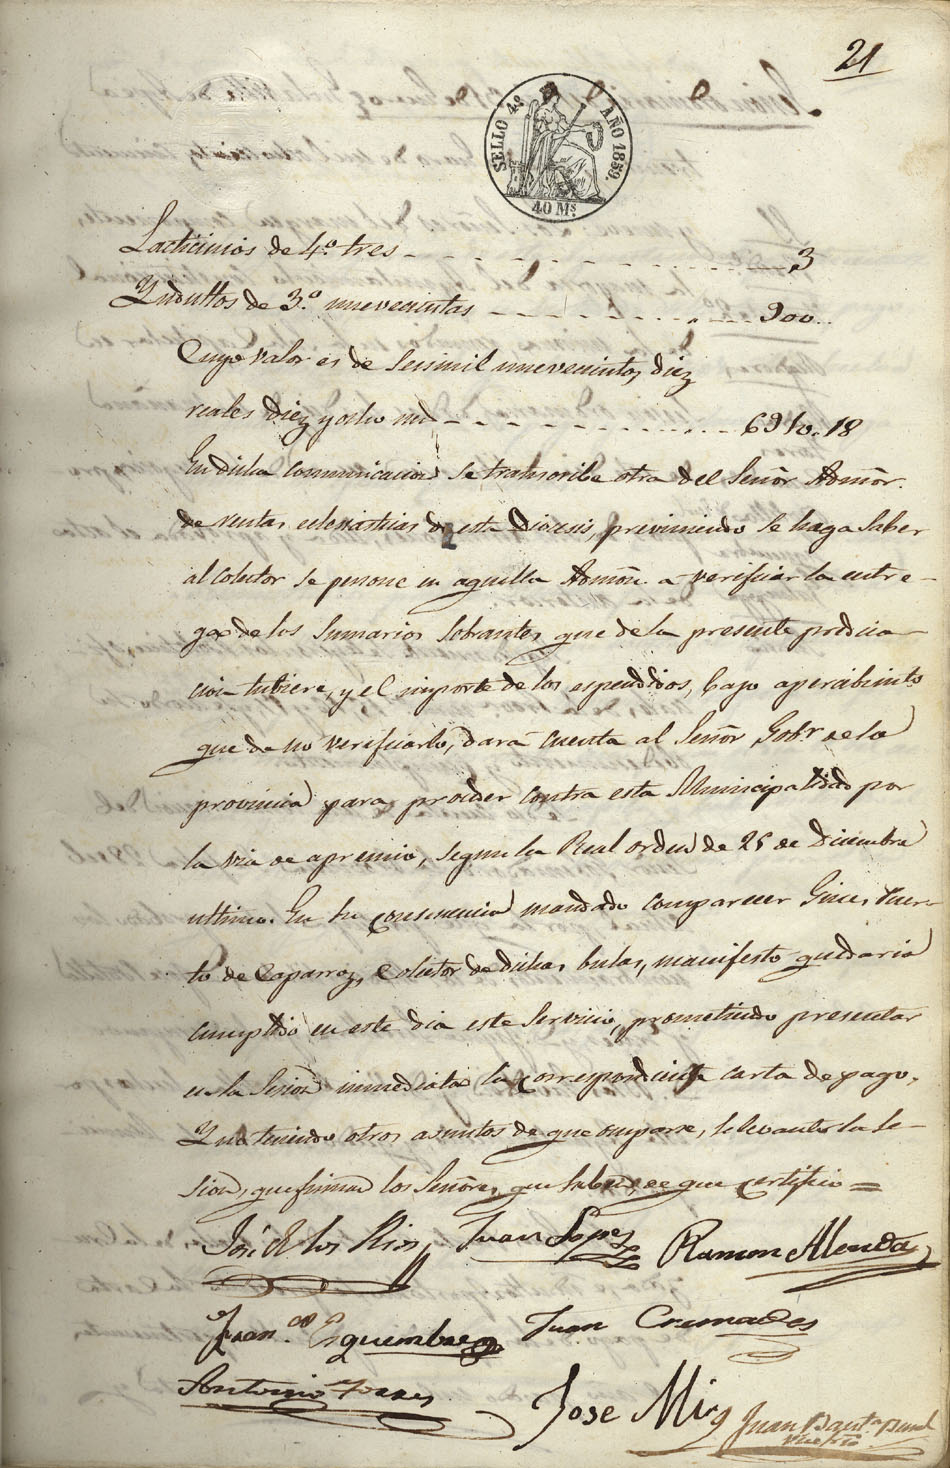 21
SELLO 4º AÑO 1859.
40 Ms
Lacticinios de 4.ª tres 3
Yndultos de 3.ª nuevecientas 900
Cuyo valor es de Seismil nuevecientos diez
reales diez y ocho ms 6910.18
En dicha comunicacion se transcribe otra del Señor Admor.
de rentas eclesiasticas de esta Diocesis, previniendo se haga saber
al Colector se persone en aquella Admon. a verificar la entre-
ga de los Sumarios Sobrantes que de la presente predica-
cion tubiere, y el importe de los espendidos, bajo apercibimto
que de no verificarlo, dará cuenta al Señor Gobr. de la
provincia para proceder contra esta Municipalidad por
la via de apremio, segun la Real orden de 25 de Diciembre
ultimo. En su consecuencia mandado comparecer Gines Tuer-
to de Caparroz, Colector de dichas bulas, manifesto quedaria
cumplido en este dia este Servicio, prometiendo presentar
en la Sesion inmediata la correspondiente carta de pago.
Y no teniendo otros asuntos de que ocuparse, se levanto la se-
sion, que firman los Señores que saben, de que certifico =
José de los Rios Juan Lopez Ramon Alenda
Franco Esquembre Juan Cremades
Antonio Torres
Jose Mira Juan Bauta